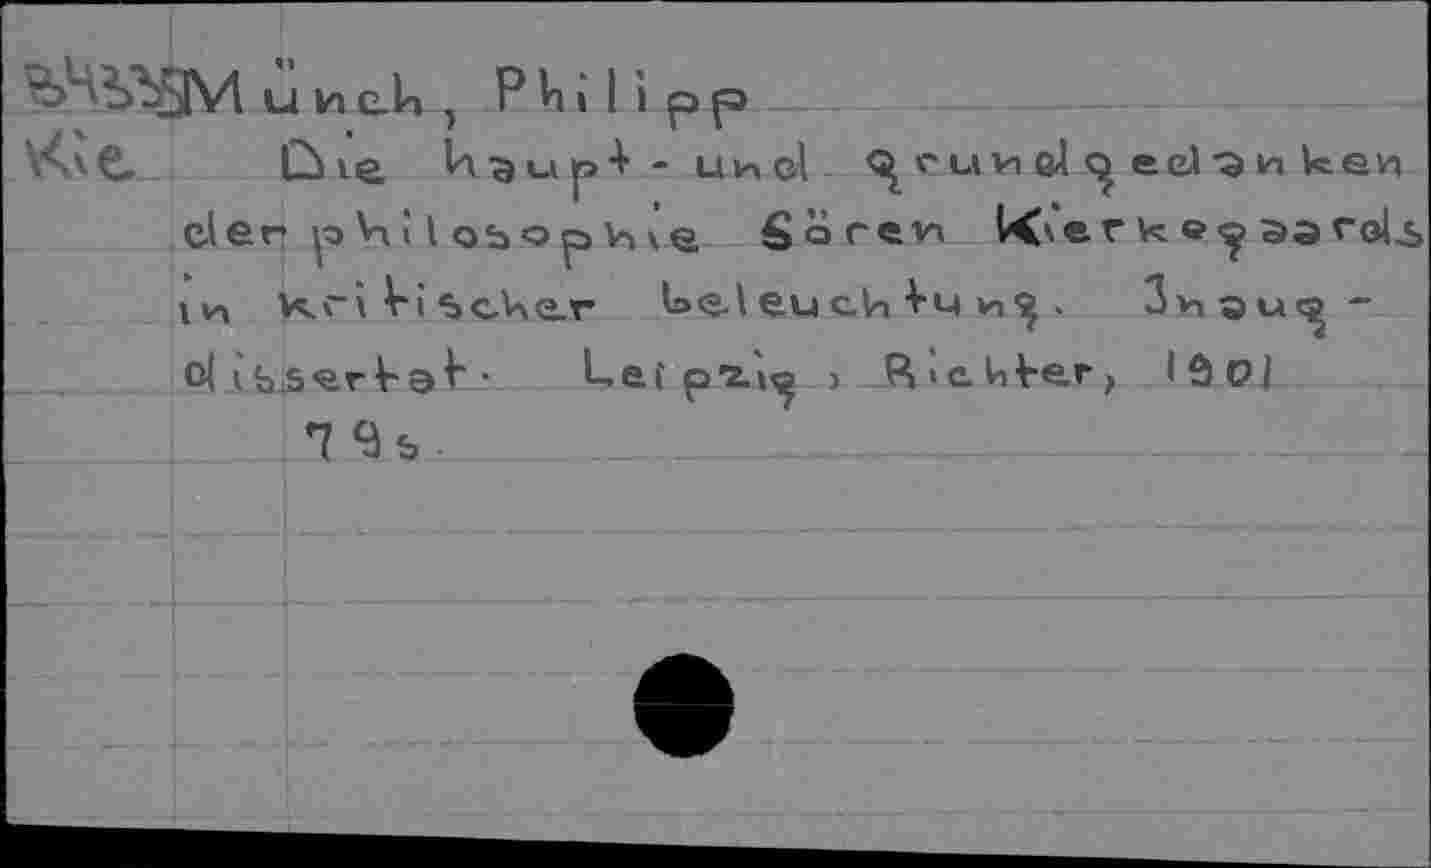 Münch, Philipp
Kie Die haupt- und grundgedanken
der philosophie Sören Kierkegaards
in kritischer beleuchtung. Inaug-
dissertat. Leipzig, Richter, 1901
79 s.